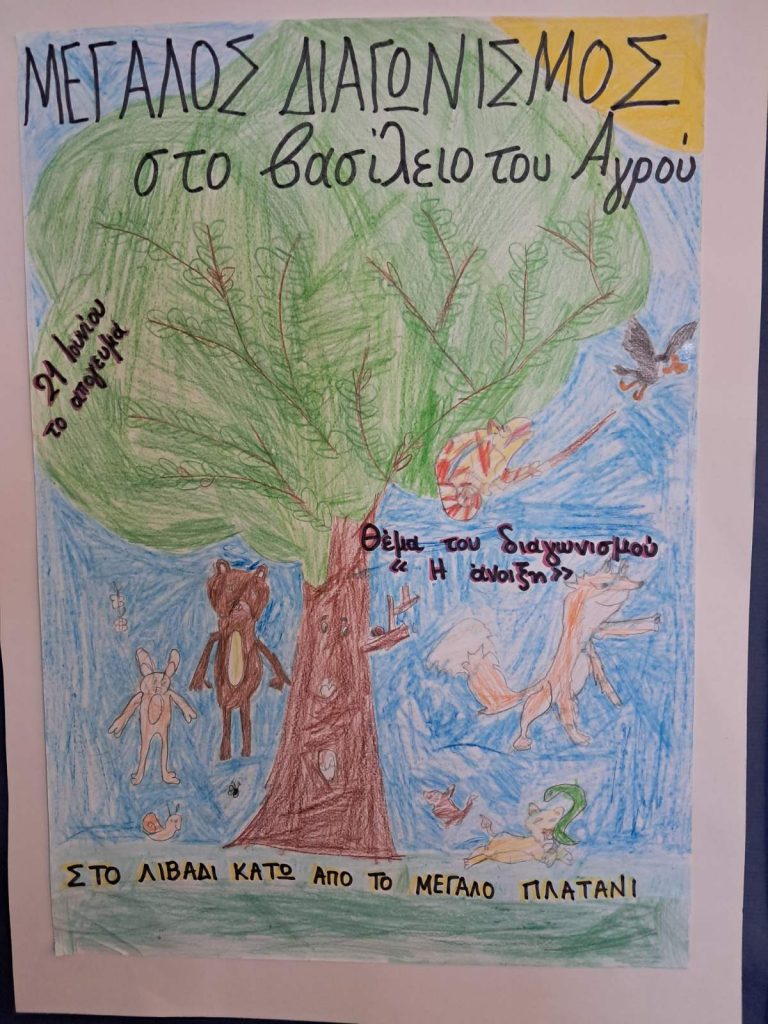 ΜΕΓΑΛΟΣ ΔΙΑΓΩΝΙΣΜΟΣ
στο βασίλειο του Αγρού
21 Ιουνίου
το απόγευμα
Θέμα του διαγωνισμού
«Η άνοιξη»
ΣΤΟ ΛΙΒΑΔΙ ΚΑΤΩ ΑΠΟ ΤΟ ΜΕΓΑΛΟ ΠΛΑΤΑΝΙ